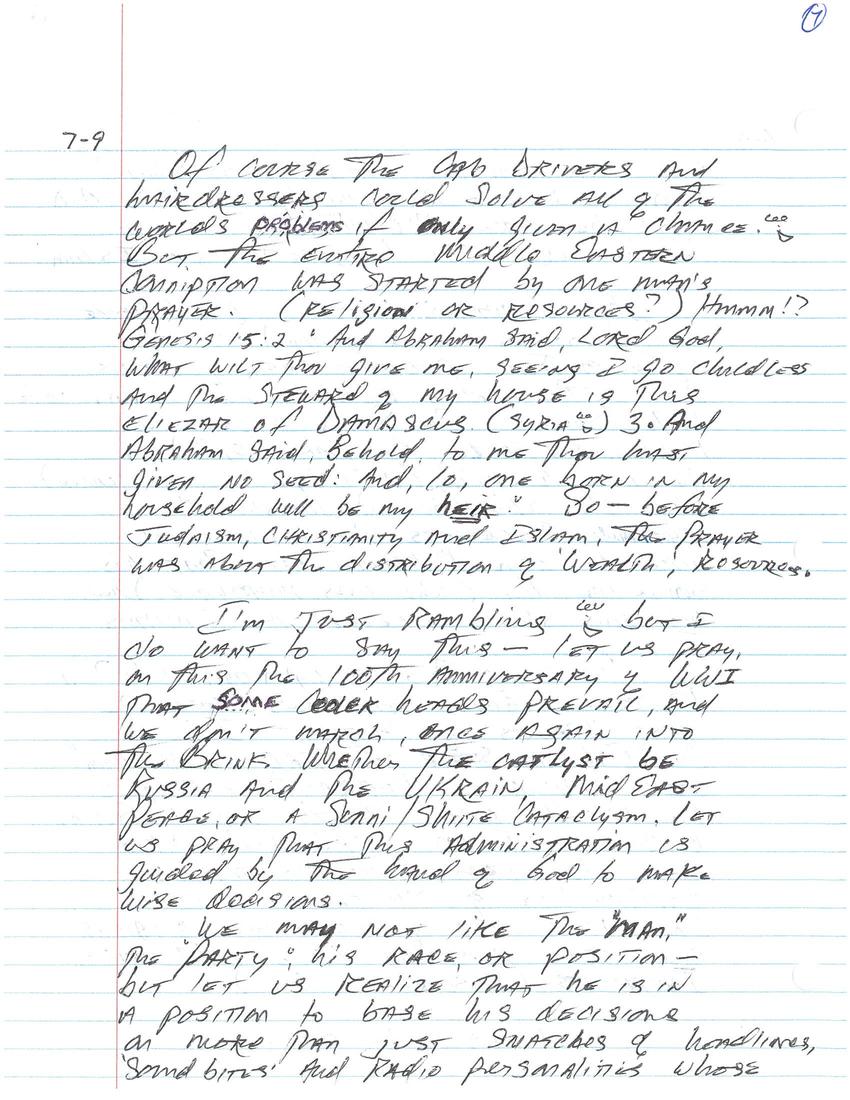 7
7-9
Of course the cab drivers and
hairdressers could solve all of the
worlds problems if only given a chance.
But the entire Middle Eastern
conniption was started by one man's
prayer. (religion or resources?) Hmmm!?
Genesis 15:2 "And Abraham said, Lord God,
what wilt thou give me, seeing I go childless
and the steward of my house is this
Eliezar of Damascus. (Syria) 3. And
Abraham said, Behold, to me thou hast
given no seed: and, lo, one born in my
household will be my heir." So — before
Judaism, Christianity and Islam, the prayer
was about the distribution of 'wealth', resources.
I'm just rambling but I
do want to say this — let us pray,
on this the 100th anniversary of WWI
that some cooler heads prevail, and
we don't march, once again into
the brink whether the catlyst be
Russia and the Ukrain, Mid East
peace, or a Sunni/Shiite cataclysm. Let
us pray that this administration is
guided by the hand of God to make
wise decisions.
We may not like the "man,"
the "party", his race, or position —
but let us realize that he is in
a position to base his decisions
on more than just snatches of headlines,
'sound bites' and radio personalities whose